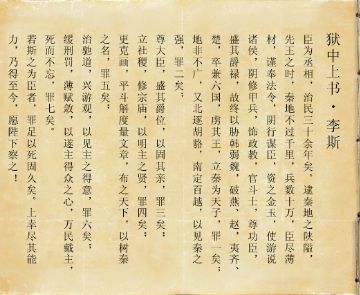 狱中上书·李斯
臣为丞相，治民三十余年矣。逮秦地之陕隘，
先王之时，秦地不过千里，兵数十万，臣尽薄
材，谨奉法令，阴行谋臣，资之金玉，使游说
诸侯，阴修甲兵，饰政教，官斗士，尊功臣，
盛其爵禄，故终以胁韩弱魏，破燕、赵，夷齐、
楚，卒兼六国，虏其王，立秦为天子，罪一矣；
地非不广，又北逐胡貉，南定百越，以见秦之
强，罪二矣；
尊大臣，盛其爵位，以固其亲，罪三矣；
立社稷，修宗庙，以明主之贤，罪四矣；
更克画，平斗斛度量文章，布之天下，以树秦
之名，罪五矣；
治驰道，兴游观，以见主之得意，罪六矣；
缓刑罚，薄赋敛，以遂主得众之心，万民戴主，
死而不忘，罪七矣。
若斯之为臣者，罪足以死固久矣。上幸尽其能
力，乃得至今，愿陛下察之！